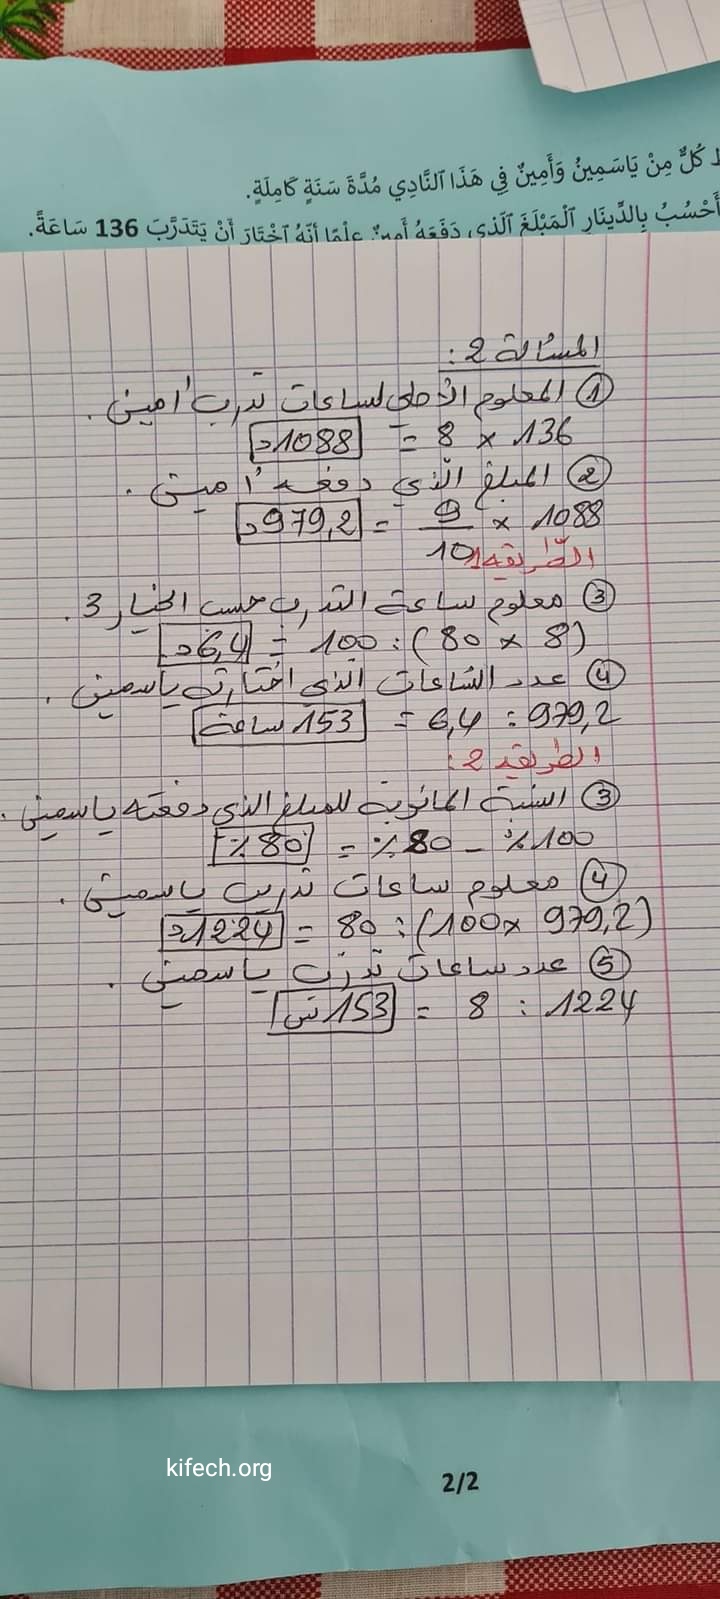 كُلٌّ مِنْ يَاسَمِينُ وَأَمِينٌ فِي هَذَا ٱلنَّادِي مُدَّةَ سَنَةٍ كَامِلَةٍ.
أَحْسُبُ بِالدِّينَارِ ٱلْمَبْلَغَ ٱلَّذِي دَفَعَهُ أَمِينٌ عِلْمًا أَنَّهُ ٱخْتَارَ أَنْ يَتَدَرَّبَ 136 سَاعَةً.
المسألة 2 :
① المعلوم الأصلي لساعات تدرب أمين .
136 × 8 = 1088د
② المبلغ الّذي دفعه أمين .
1088 × 9/10 = 979,2د
الطّريقة 1
③ معلوم ساعة التدرب حسب الخيار 3 .
(8 × 80) : 100 = 6,4د
④ عدد السّاعات الذي اختارته ياسمين .
979,2 : 6,4 = 153 ساعة
الطريقة 2 :
③ النسبة المائوية للمبلغ الذي دفعته ياسمين .
100٪ - 80٪ = 80٪
④ معلوم ساعات تدريب ياسمين .
(979,2 ×100) : 80 = 1224د
⑤ عدد ساعات تدرّب ياسمين .
1224 : 8 = 153 س
kifech.org
2/2